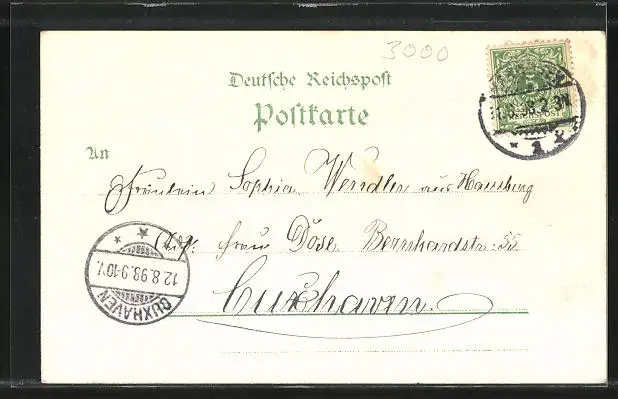 3000
Deutsche Reichspost
Postkarte
REICHSPOST
An
Fräulein Sophia Wendler aus Hamburg
Frau Döse Bernhardstr: 55
Cuxhaven.
12.8.98.9-10V.
CUXHAVEN